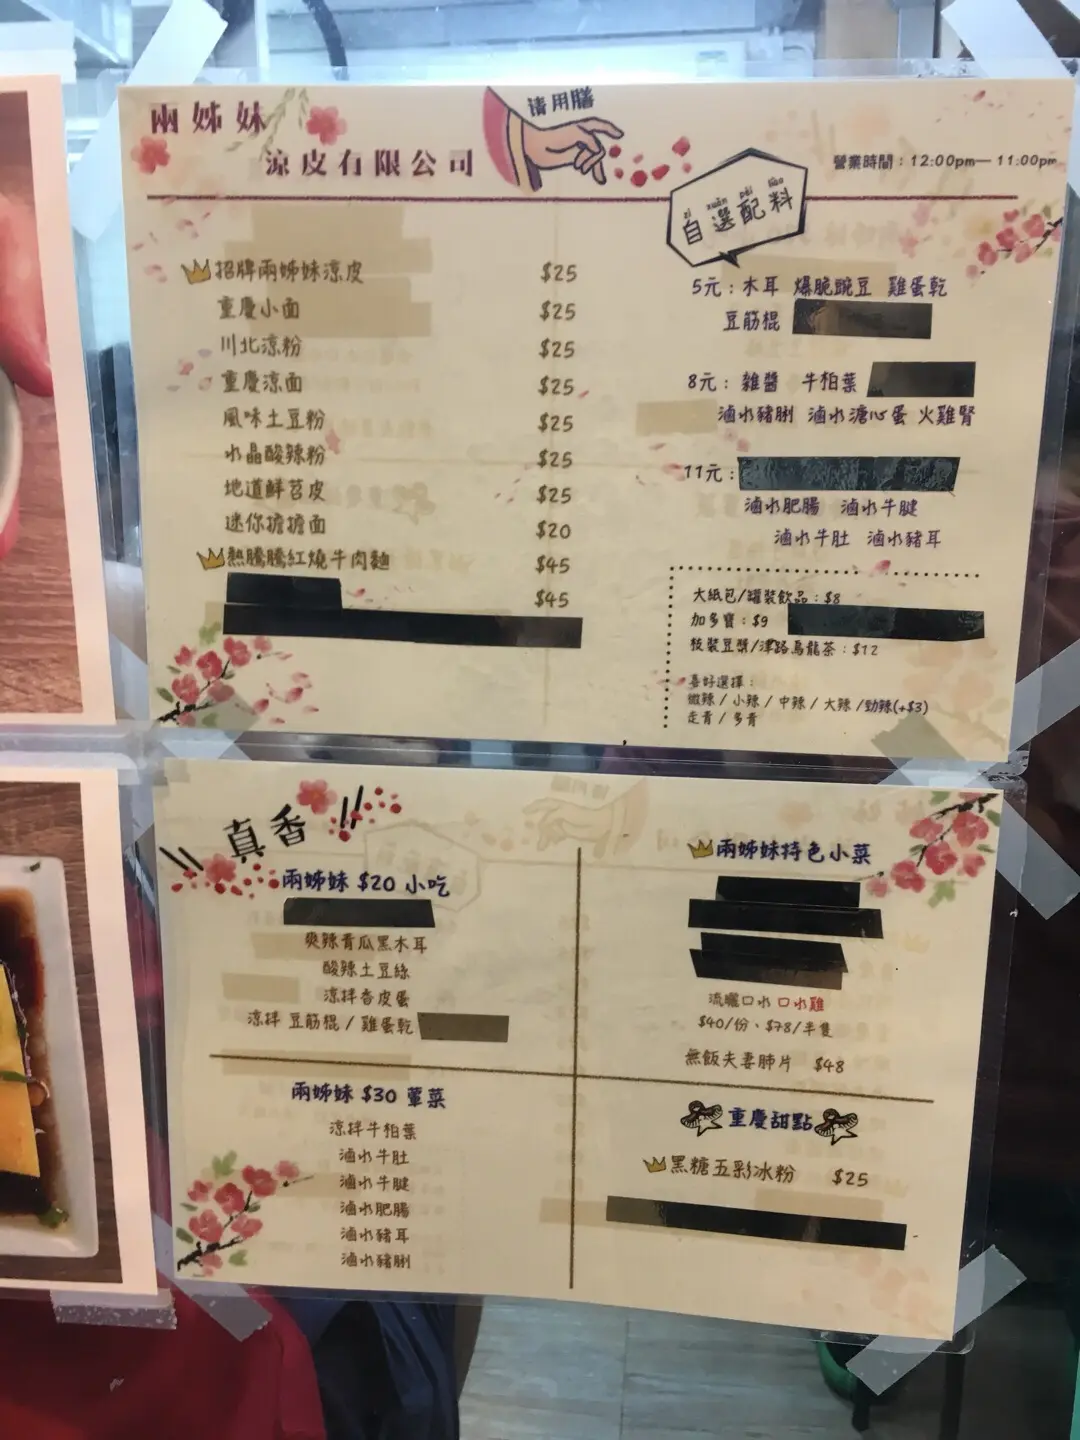 兩姊妹
涼皮有限公司
请用膳
營業時間：12:00pm— 11:00pm
zì xuǎn pèi liào
自選配料
招牌兩姊妹涼皮 $25
重慶小面 $25
川北涼粉 $25
重慶涼面 $25
風味土豆粉 $25
水晶酸辣粉 $25
地道鮮苕皮 $25
迷你擔擔面 $20
熱騰騰紅燒牛肉麵 $45
$45
5元：木耳 爆脆豌豆 雞蛋乾
豆筋棍
8元：雜醬 牛柏葉
滷水豬脷 滷水溏心蛋 火雞腎
11元：
滷水肥腸 滷水牛腱
滷水牛肚 滷水豬耳
大紙包/罐裝飲品：$8
加多寶：$9
枝裝豆漿/津路烏龍茶：$12
喜好選擇：
微辣 / 小辣 / 中辣 / 大辣 /勁辣(+$3)
走青 / 多青
真香
兩姊妹 $20 小吃
爽辣青瓜黑木耳
酸辣土豆絲
涼拌香皮蛋
涼拌 豆筋棍 / 雞蛋乾
兩姊妹特色小菜
流曬口水 口水雞
$40/份、$78/半隻
無飯夫妻肺片 $48
兩姊妹 $30 葷菜
涼拌牛柏葉
滷水牛肚
滷水牛腱
滷水肥腸
滷水豬耳
滷水豬脷
重慶甜點
黑糖五彩冰粉 $25